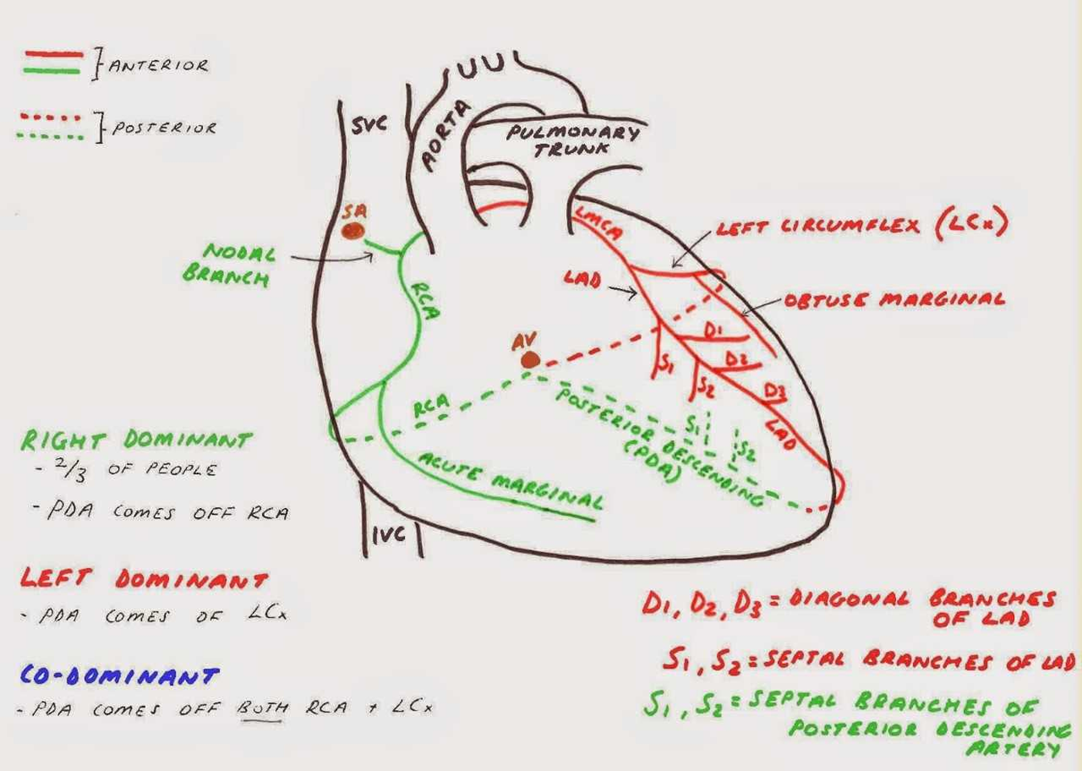 ANTERIOR
POSTERIOR
SVC
AORTA
PULMONARY
TRUNK
SA
NODAL
BRANCH
RCA
LMCA
LEFT CIRCUMFLEX (LCx)
LAD
OBTUSE MARGINAL
AV
D1
D2
D3
S1
S2
LAD
RCA
POSTERIOR DESCENDING
(PDA)
S1
S2
ACUTE MARGINAL
IVC
RIGHT DOMINANT
- 2/3 OF PEOPLE
- PDA COMES OFF RCA
LEFT DOMINANT
- PDA COMES OF LCx
CO-DOMINANT
- PDA COMES OFF BOTH RCA + LCx
D1, D2, D3 = DIAGONAL BRANCHES
OF LAD
S1, S2 = SEPTAL BRANCHES OF LAD
S1, S2 = SEPTAL BRANCHES OF
POSTERIOR DESCENDING
ARTERY